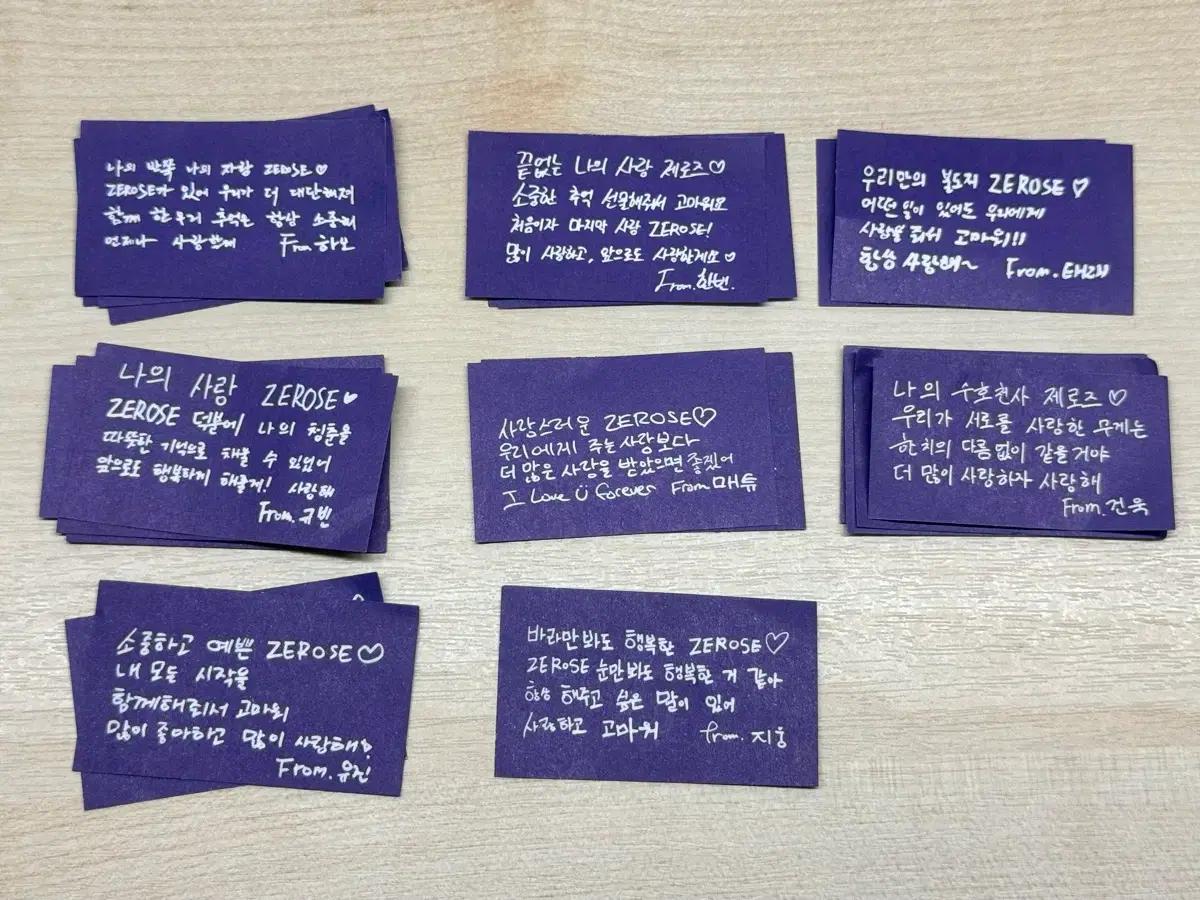 나의 반쪽 나의 자랑 ZEROSE♡
ZEROSE가 있어 우리가 더 대단해져
함께 한 우리 추억은 항상 소중해
언제나 사랑할게 From.하오
끝없는 나의 사랑 제로즈♡
소중한 추억 선물해줘서 고마워요
처음이자 마지막 사랑 ZEROSE!
많이 사랑하고, 앞으로도 사랑할게요♡
From.한빈.
우리만의 보도지 ZEROSE♡
어떤 일이 있어도 우리에게
사랑을 줘서 고마워!!
항상 사랑해~ From.태래
나의 사랑 ZEROSE♥
ZEROSE 덕분에 나의 청춘을
따뜻한 기억으로 채울 수 있었어
앞으로도 행복하게 해줄게! 사랑해
From.규빈
사랑스러운 ZEROSE♡
우리에게 주는 사랑보다
더 많은 사랑을 받았으면 좋겠어
I Love U forever From매튜
나의 수호천사 제로즈♡
우리가 서로를 사랑한 무게는
한치의 다름없이 같을거야
더 많이 사랑하자 사랑해
From.건욱
소중하고 예쁜 ZEROSE♡
내 모든 시작을
함께해줘서 고마워
많이 좋아하고 많이 사랑해!
From.유진
바라만봐도 행복한 ZEROSE♡
ZEROSE 눈만봐도 행복한 거 같아
항상 해주고 싶은 말이 있어
사랑하고 고마워 from.지웅